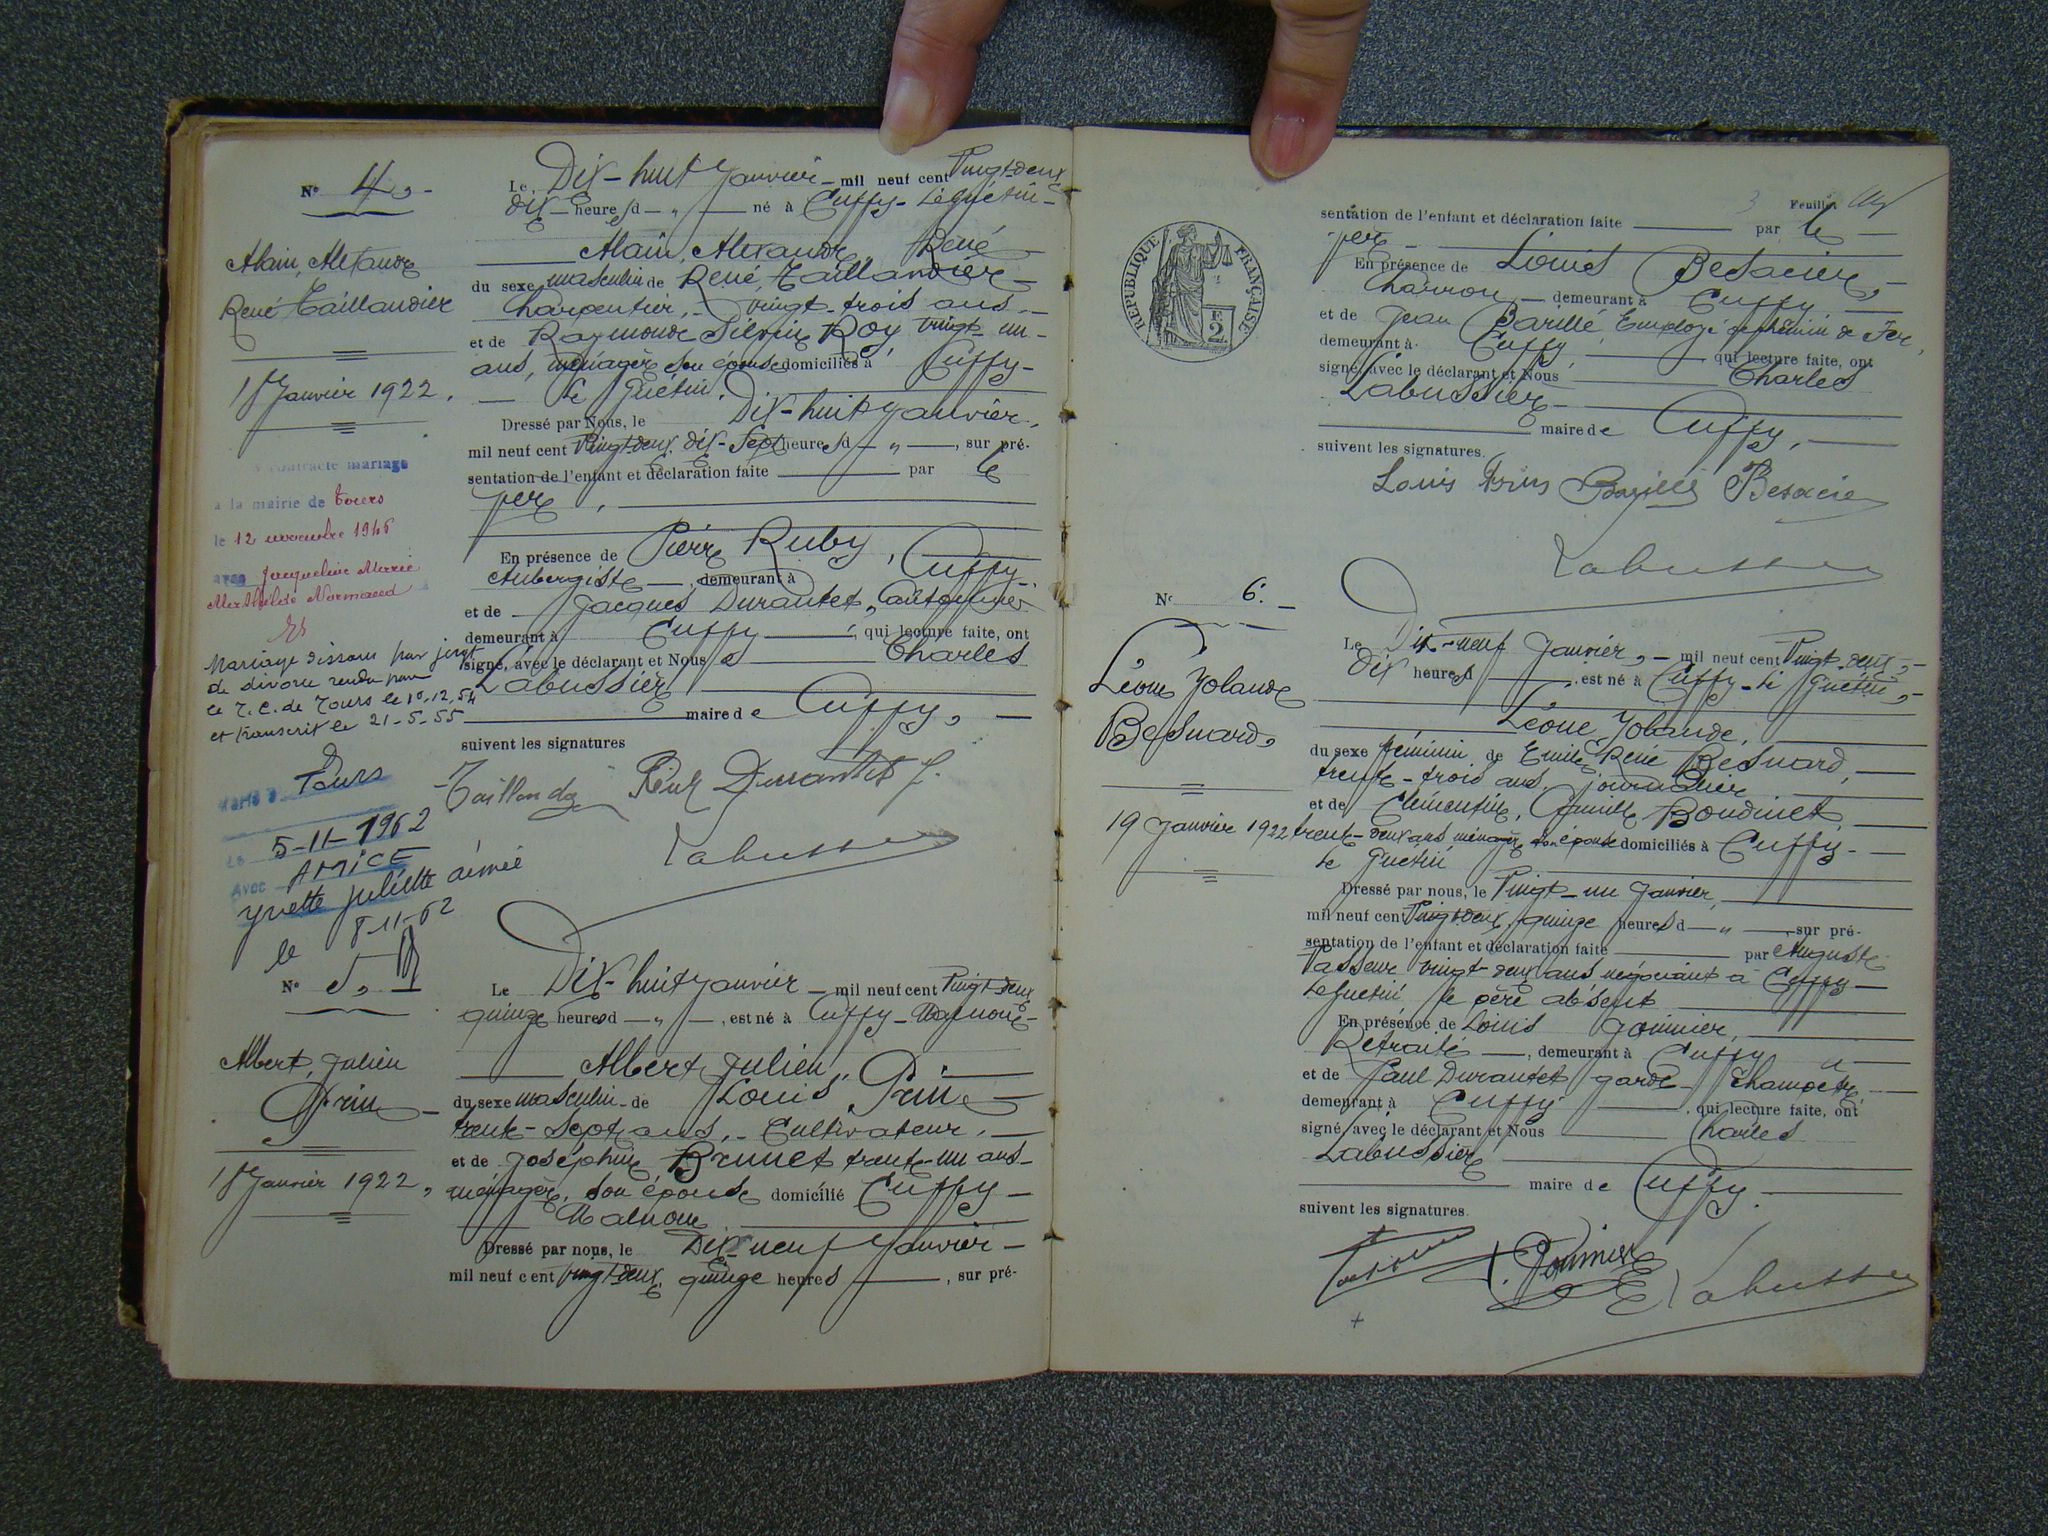 N° 4.
Alain, Alexandre
René Taillandier
18 Janvier 1922.
a contracté mariage
à la mairie de Tours
le 12 novembre 1946
avec Jacqueline Marie
Mathilde Normand
Mariage dissous par jugt
de divorce rendu par
le T. C. de Tours le 10.12.54
et transcrit le 21-5-55
Marié à Tours
Le 5-11-1962
Avec AMICE
Yvette Juliette Aimée
le 8-11-62
Le Dix-huit Janvier mil neuf cent Vingt-deux
dix heures d " né à Cuffy-Le Guétin
Alain, Alexandre, René
du sexe masculin de René, Taillandier
Charpentier, vingt-trois ans
et de Raymonde Silvine Roy vingt-un
ans, ménagère son épouse domiciliés à Cuffy-
Le Guétin.
Dressé par Nous, le Dix-huit Janvier,
mil neuf cent Vingt-deux dix-sept heures d " , sur pré-
sentation de l'enfant et déclaration faite par le
père,
En présence de Pierre Ruby,
Aubergiste, demeurant à Cuffy
et de Jacques Durantet, Cantonnier
demeurant à Cuffy, qui lecture faite, ont
signé, avec le déclarant et Nous Charles
Labussière
maire de Cuffy,
suivent les signatures
Durantet J.
Labussière
N° 5.
Albert, Julien
Prin
18 Janvier 1922,
Le Dix-huit Janvier mil neuf cent Vingt-deux
quinze heures d " , est né à Cuffy-Malnoue
Albert, Julien,
du sexe masculin de Louis Prin
trente-sept ans, Cultivateur,
et de Joséphine Brunet trente-un ans
ménagère, son épouse domicilié Cuffy
Malnoue
Dressé par nous, le Dix-neuf Janvier
mil neuf cent vingt-deux quinze heures , sur pré-
3 Feuillet
sentation de l'enfant et déclaration faite par le
père
En présence de Louis Besacier,
Charron, demeurant à Cuffy
et de Jean Barillé, Employé de chemin de Fer,
demeurant à Cuffy, qui lecture faite, ont
signé, avec le déclarant et Nous Charles
Labussière
maire de Cuffy,
suivent les signatures.
Louis Prin Barillé Besacier
Labussière
RÉPUBLIQUE FRANÇAISE
2 F
N° 6.
Léone Yolande
Besnard,
19 Janvier 1922
Le Dix-neuf Janvier, mil neuf cent Vingt-deux,
Dix heures d , est né à Cuffy-Le Guétin,
Léone, Yolande,
du sexe féminin de Emile, René Besnard,
trente-trois ans, journalier
et de Clémentine, Camille Boudinet,
trente-deux ans ménagère son épouse domiciliés à Cuffy-
Le Guétin
Dressé par nous, le Vingt-un Janvier,
mil neuf cent Vingt-deux, quinze heures d " , sur pré-
sentation de l'enfant et déclaration faite par Auguste
Vasseur vingt-deux ans négociant à Cuffy
Le Guétin le père absent
En présence de Louis
Retraité, demeurant à Cuffy
et de Paul Durantet garde-Champêtre
demeurant à Cuffy, qui lecture faite, ont
signé, avec le déclarant et Nous Charles
Labussière
maire de Cuffy.
suivent les signatures.
Labussière